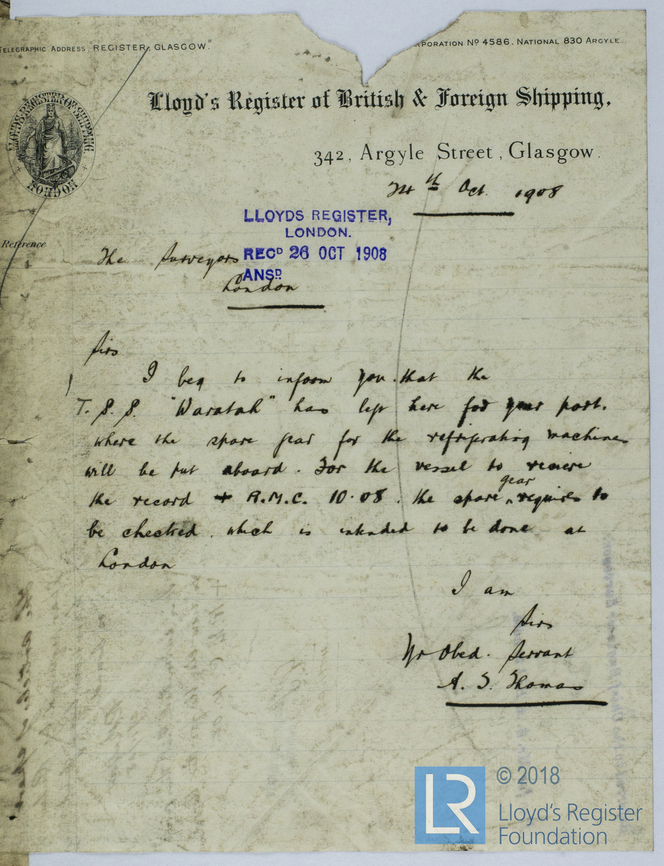 TELEGRAPHIC ADDRESS, REGISTER, GLASGOW.
PORATION Nº 4586. NATIONAL 830 ARGYLE.
Lloyd's Register of British & Foreign Shipping.
LLOYD'S REGISTER OF SHIPPING
342, Argyle Street, Glasgow.
24th Oct. 1908
Reference
LLOYDS REGISTER,
LONDON.
RECD 26 OCT 1908
ANSD
The Surveyors
London
Sirs
I beg to inform you that the
T.S.S. "Waratah" has left here for your port.
where the spare gear for the refrigerating machines
will be put aboard. For the vessel to receive
gear
the record + R.M.C. 10.08. the spare ^ requires to
be checked. which is intended to be done at
London
I am
Sirs
Yr Obed. Servant
A. Thomas
LR
© 2018
Lloyd's Register
Foundation